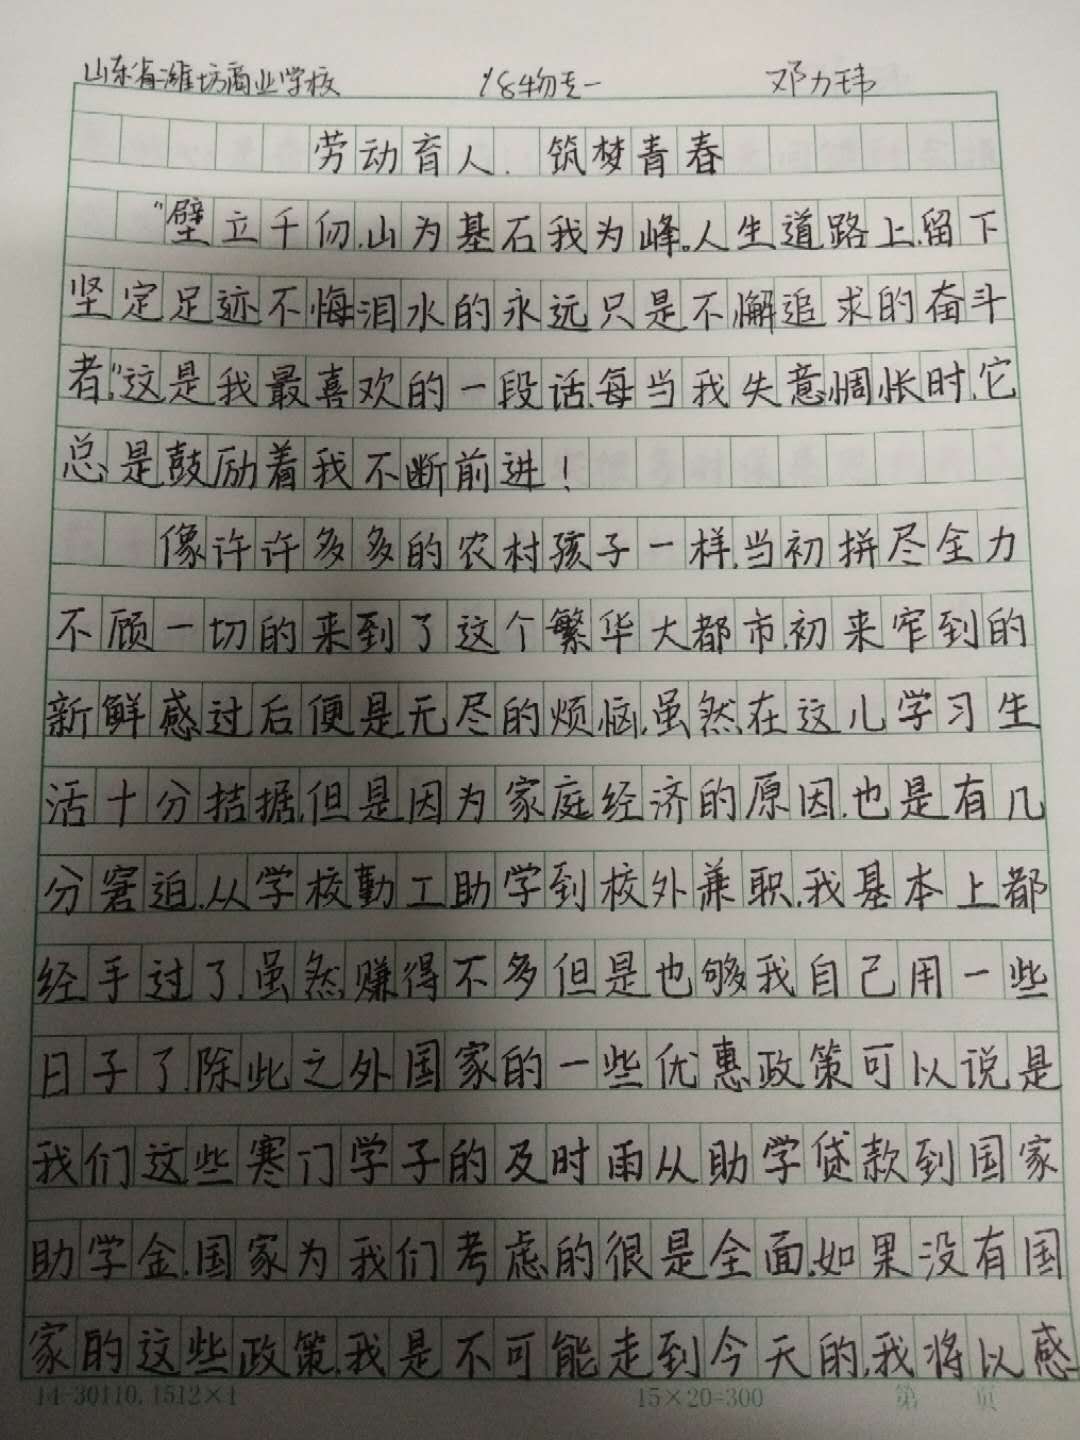 山东省潍坊商业学校 18物专一 邓力玮
劳动育人、筑梦青春
“壁立千仞,山为基石我为峰。人生道路上,留下
坚定足迹不悔泪水的永远只是不懈追求的奋斗
者,”这是我最喜欢的一段话,每当我失意惆怅时,它
总是鼓励着我不断前进!
像许许多多的农村孩子一样,当初拼尽全力
不顾一切的来到了这个繁华大都市,初来窄到的
新鲜感过后便是无尽的烦恼,虽然在这儿学习生
活十分拮据,但是因为家庭经济的原因,也是有几
分窘迫,从学校勤工助学到校外兼职,我基本上都
经手过了,虽然赚得不多但是也够我自己用一些
日子了,除此之外国家的一些优惠政策可以说是
我们这些寒门学子的及时雨从助学贷款到国家
助学金,国家为我们考虑的很是全面,如果没有国
家的这些政策,我是不可能走到今天的,我将以感
14-30110,1512×1 15×20=300 第 页